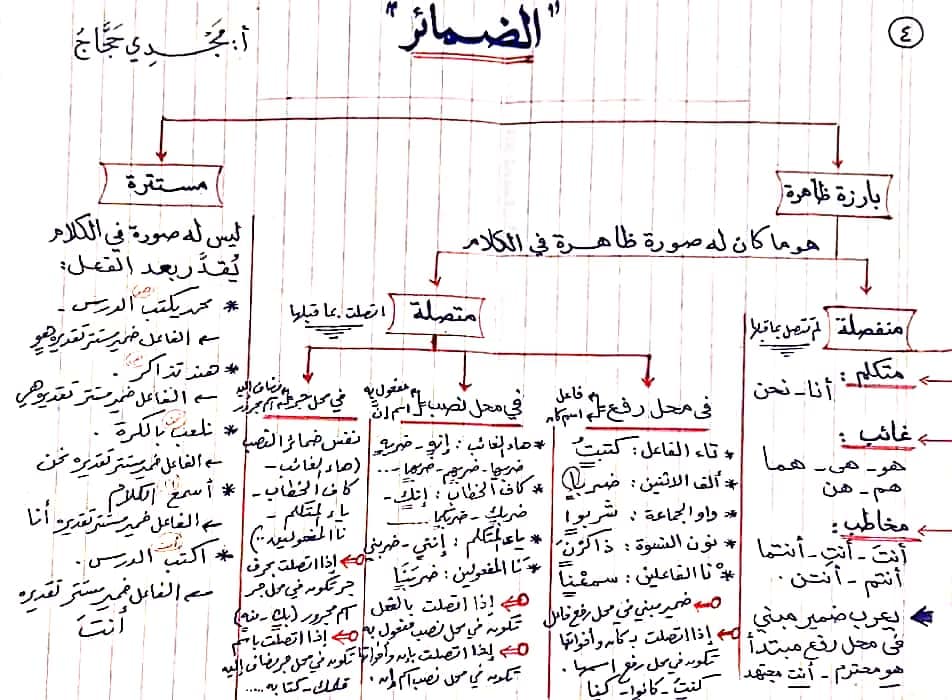 ٤
"الضمائر"
أ: مَجْدِي حَجَّاجُ
بارزة ظاهرة
هو ما كان له صورة ظاهرة في الكلام
منفصلة
لم تتصل بما قبلها
متكلم:
أنا - نحن
غائب:
هو - هى - هما
هم - هن
مخاطب:
أنتَ - أنتِ - أنتما
أنتم - أنتن.
يعرب ضمير مبني
في محل رفع مبتدأ
هو محترم - أنت مجتهد
متصلة
اتصلت بما قبلها
في محل رفع
فاعل
اسم كان
* تاء الفاعل: كتبتُ
* ألف الاثنين: ضربا
* واو الجماعة: شربوا
* نون النسوة: ذاكرْنَ
* نا الفاعلين: سمعْنا
ضمير مبني في محل رفع فاعل
إذا اتصلت بـ كان وأخواتها
تكون في محل رفع اسمها.
كنتُ - كانوا - كنا
في محل نصب
مفعول به
اسم إنّ
* هاء الغائب: إنه - ضربه
ضربها - ضربهم - ضربهما...
* كاف الخطاب: إنك -
ضربك - ضربكما ......
* ياء المتكلم: إنني - ضربني
* نَا المفعولين: ضربَنَا
إذا اتصلت بالفعل
تكون في محل نصب مفعول به
إذا اتصلت بإن وأخواتها
تكون في محل نصب اسم إن.
في محل جر
مضاف إليه
اسم مجرور
نفس ضمائر النصب
(هاء الغائب -
كاف الخطاب -
ياء المتكلم -
نا المفعولين..)
إذا اتصلت بحرف
جر تكون في محل جر
اسم مجرور (بك - منه)
إذا اتصلت باسم
تكون في محل جر مضاف إليه
قلمك - كتابه .....
مستترة
ليس له صورة في الكلام
يُقدَّر بعد الفعل:
* محمد يكتب الدرس -
الفاعل ضمير مستتر تقديره هو
* هند تذاكر.
الفاعل ضمير مستتر تقديره هي
* نلعب بالكرة.
الفاعل ضمير مستتر تقديره نحن
* أسمع الكلام
الفاعل ضمير مستتر تقديره أنا
* اكتب الدرس.
الفاعل ضمير مستتر تقديره
أنتَ